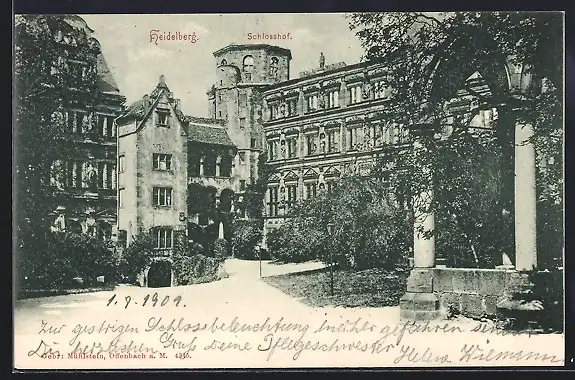 Heidelberg.
Schlosshof.
1.9.1901
Zur gestrigen Schlossbeleuchtung hierher gefahren sende
Dir herzlichen Gruß deine Pflegeschwester
Helene Wiemann
Gebr. Mühlstein, Offenbach a. M. 4915.